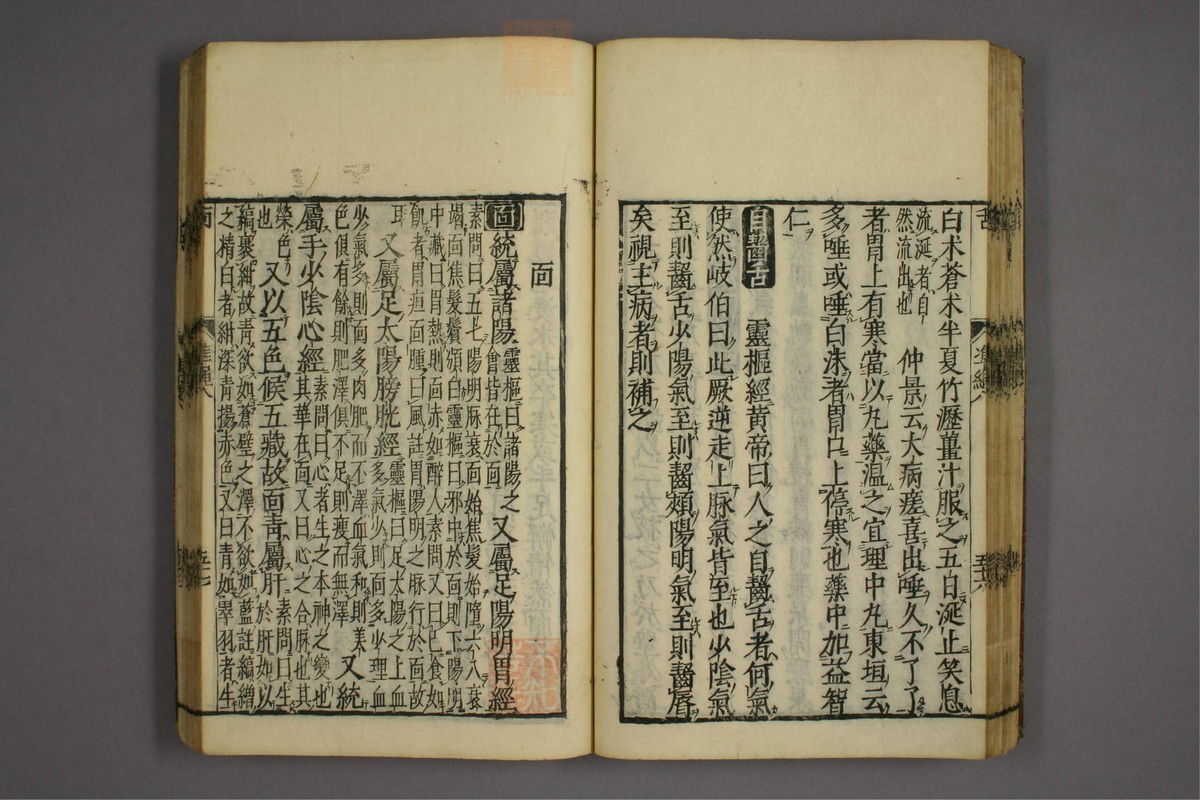 白朮蒼朮半夏竹瀝薑汁服之五白涎止笑息
流涎者自
然流出也
仲景云大病瘥喜出唾久不了了
者胃上有寒當以丸藥温之宜理中丸東垣云
多唾或唾白沫者胃口上停寒也藥中加益智
仁
自齧舌
靈樞經黄帝曰人之自齧舌者何氣
使然岐伯曰此厥逆走上脉氣皆至也少陰氣
至則齧舌少陽氣至則齧頰陽明氣至則齧脣
矣視主病者則補之
面
面
統屬諸陽
靈樞曰諸陽之
會皆在於面
又屬足陽明胃經
素問曰五七陽明脉衰面始焦髮始墮六八衰
竭面焦髮鬢頒白靈樞曰邪中於面則下陽明
中藏曰胃熱則面赤如醉人素問又曰已食如
飢者胃疸面腫曰風註胃陽明之脉行於面故
耳
又屬足太陽膀胱經
靈樞曰足太陽之上血
多氣少則面多少理血
少氣多則面多肉肥而不澤血氣和則美
色俱有餘則肥澤俱不足則瘦而無澤
又統
屬手少陰心經
素問曰心者生之本神之變也
其華在面又曰心之合脉也其
榮色
也
又以五色候五藏故面青屬肝
素問曰生
於肝如以
縞裹紺故青欲如蒼璧之澤不欲如藍註縞繒
之精白者紺深青揚赤色又曰青如翠羽者生